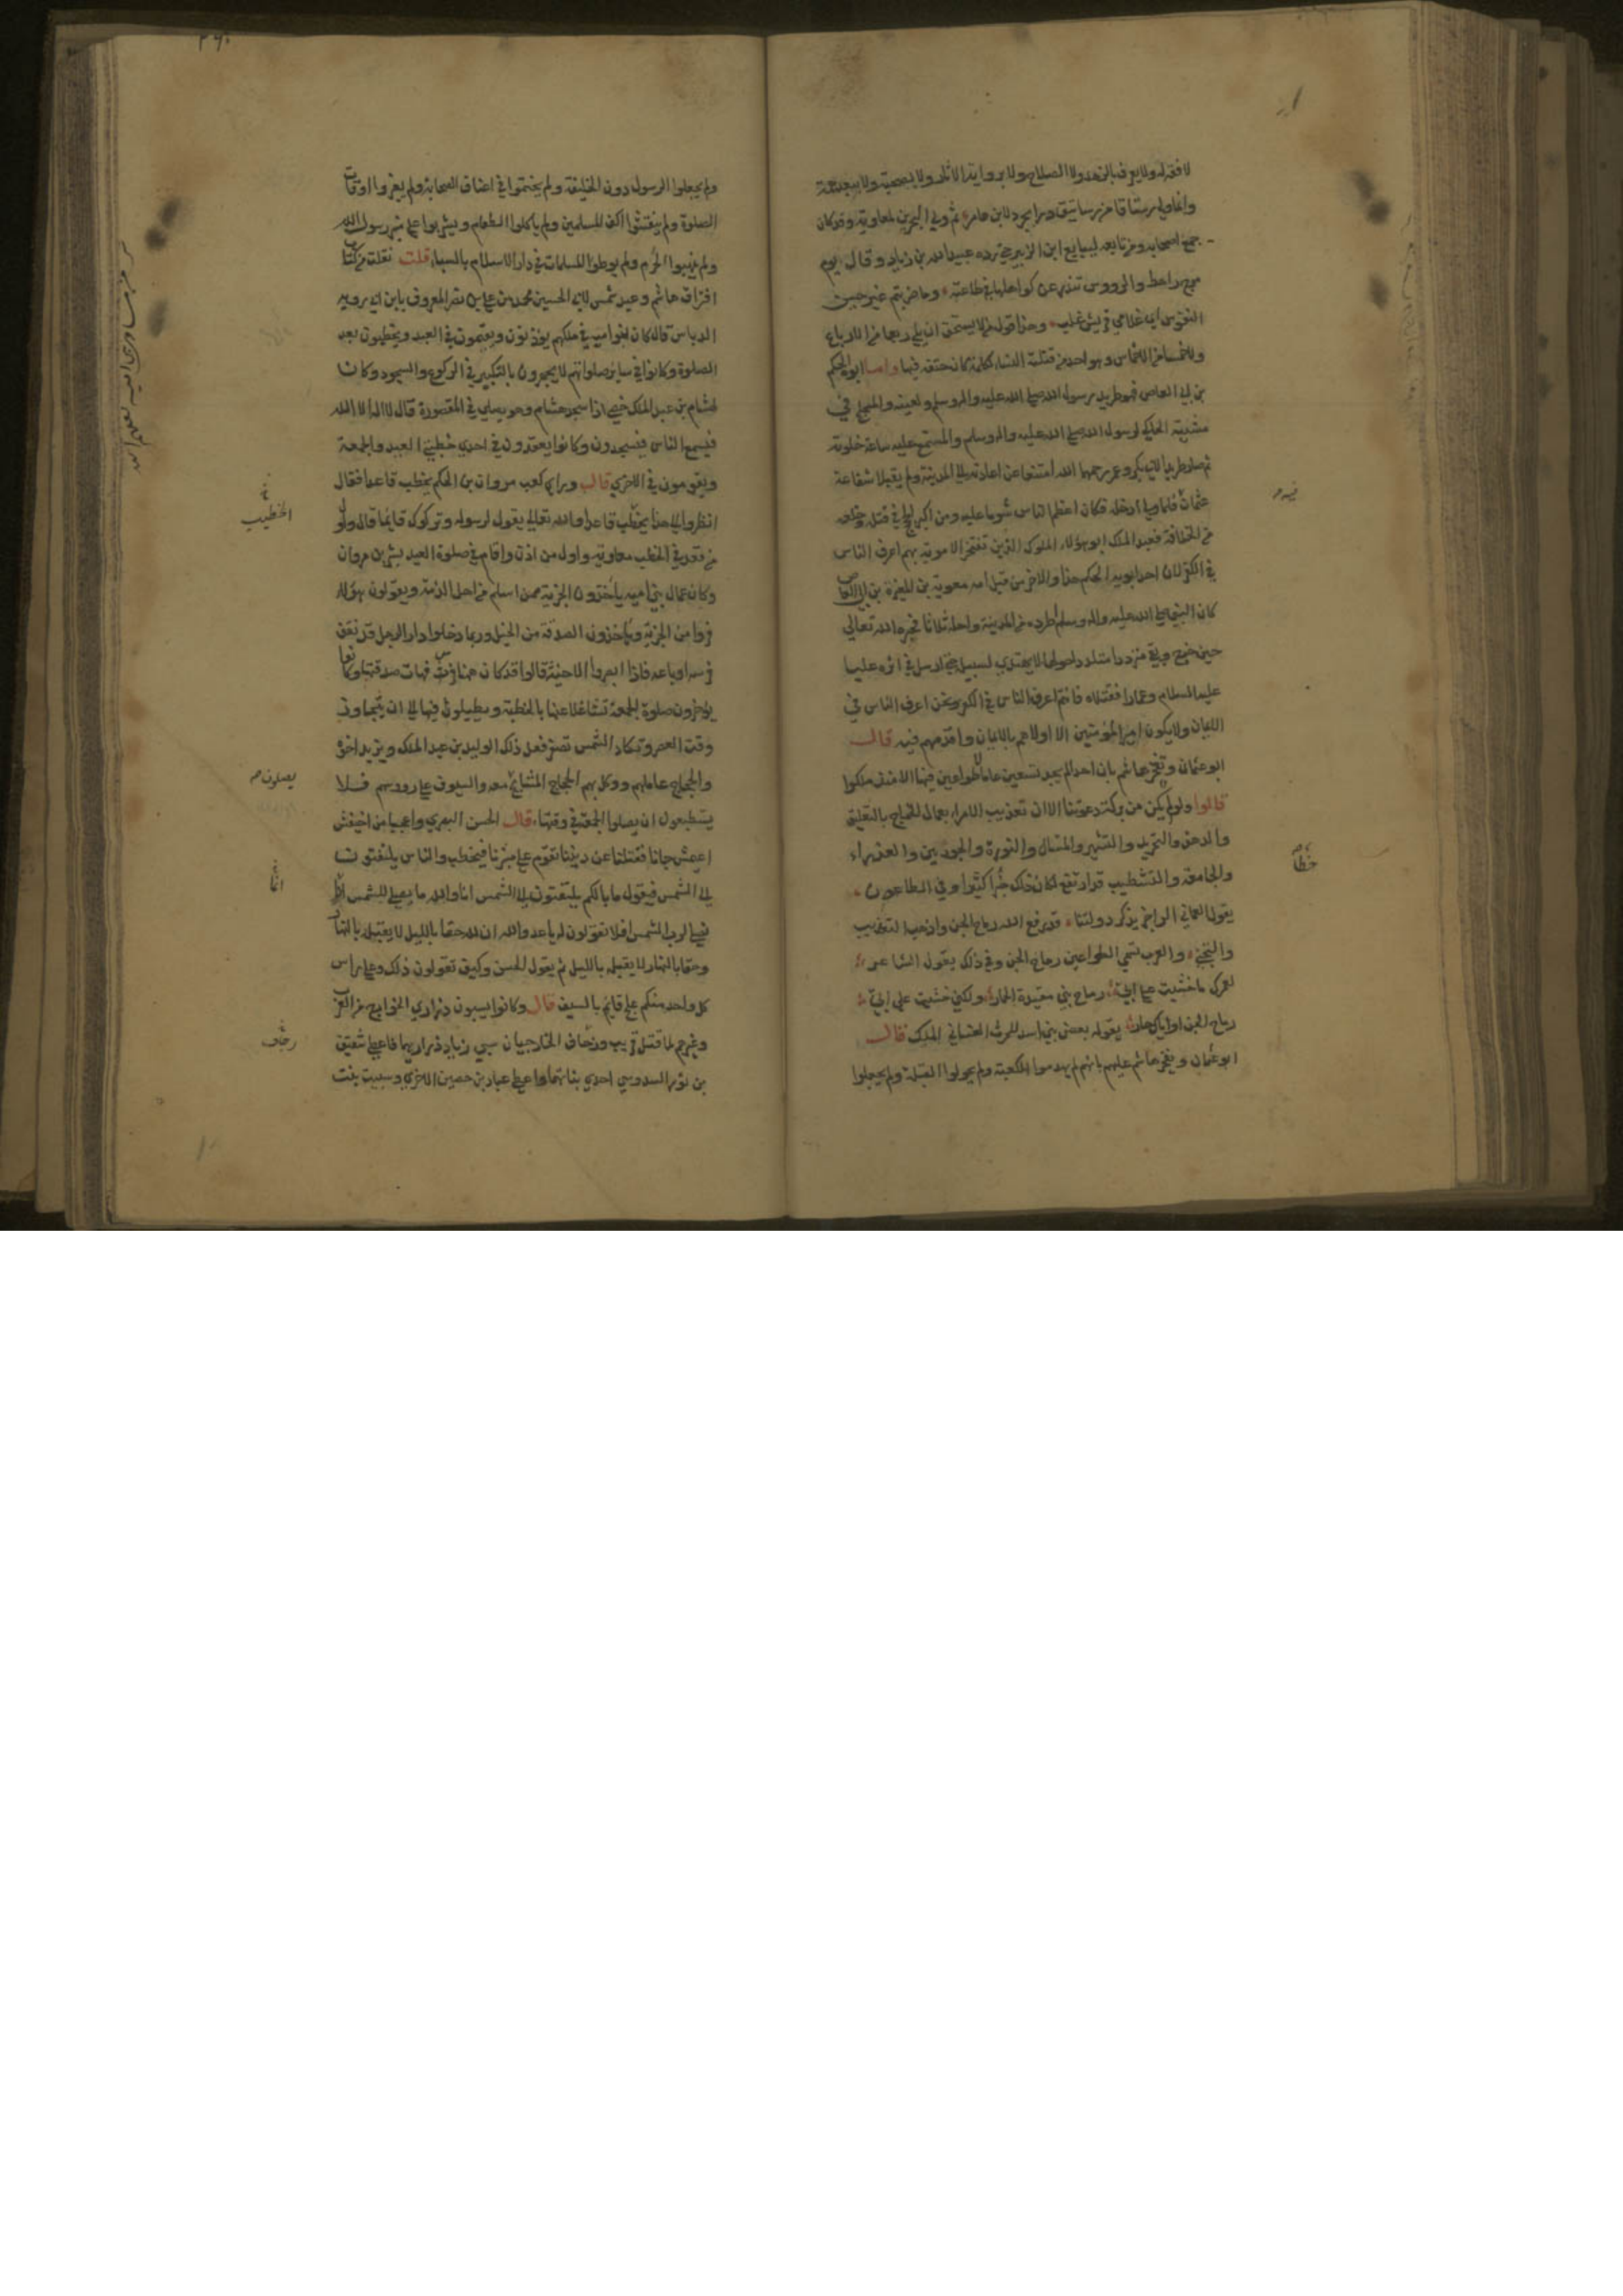 لا فقه له ولا يعرف بالزهد ولا الصلاح ولا برواية الاثار ولا بصحبة ولا ببعد همة
وانما ولي رستاقا من رساتيق درابجرد لابن عامر ثم ولي البحرين لمعاوية وقد كان
جمع اصحابه ومن تابعه ليبايع ابن الزبير حتى رده عبيد الله بن زياد وقال يوم
مرج راهط والرووس تندر عن كواهلها في طاعته وما ضرهم غير حين
النفوس اي غلامي قريش غلب وهذا قول من لا يستحق ان يلي ربعا من الارباع
ولا خمسا من الاخماس وهو احد من قتلته النساء لكلمة كان حتفه فيها واما ابوه الحكم
بن ابي العاص فهو طريد رسول الله صلى الله عليه واله وسلم ولعينه والمتخلج في
مشيته الحاكي لرسول الله صلى الله عليه واله وسلم والمستمع عليه ساعة خلوته
ثم صار طريدا لابي بكر وعمر رحمهما الله امتنعا عن اعادته الى المدينة ولم يقبلا شفاعة
عثمان فلما ولي ادخله فكان اعظم الناس شوما عليه ومن اكبر الحجج في قتله وخلعه
من الخلافة فعبد الملك ابو هؤلاء الملوك الذين تفتخر الاموية بهم اعرق الناس
في الكفر لان احد ابويه الحكم هذا والاخر من قبل امه معوية بن المغيرة بن ابي العاص
كان النبي صلى الله عليه واله وسلم طرده من المدينة واجله ثلاثا فحيره الله تعالى
حين خرج وبقي مترددا متلددا حولها لا يهتدي لسبيله حتى ارسل في اثره عليا
عليه السلام وعمارا فقتلاه فانتم اعرق الناس في الكفر ونحن اعرق الناس في
الايمان ولا يكون امير المؤمنين الا اولاهم بالايمان واقدمهم فيه قال
ابو عثمان وتفخر هاشم بان احدا لم يجد تسعين عاما لا طواعين فيها الا منذ ملكوا
قالوا ولو لم يكن من بركة دعوتنا الا ان تعذيب الامراء بعمال الخراج بالتعليق
والدهق والتجريد والتسهير والمسال والنورة والجورتين والعذراء
والجامعة والتشطيب قد ارتفع لكان ذلك خيرا كثيرا وفي الطاعون
يقول العماني الراجز يذكر دولتنا قد رفع الله رماح الجن واذهب التعذيب
والتجني والعرب تسمي الطواعين رماح الجن وفي ذلك يقول الشاعر
لعمرك ما خشيت على ابي رماح بني مقيدة الحمار ولكني خشيت على ابي
رماح الجن او اياك حار يقوله بعض بني اسد للحرث الغساني الملك قال
ابو عثمان وتفخر هاشم عليهم بانهم لم يهدموا الكعبة ولم يحولوا القبلة ولم يجعلوا
فيه
خطا
٢٦٠
ولم يجعلوا الرسول دون الخليفة ولم يختموا في اعناق الصحابة ولم يغيروا اوقات
الصلوة ولم ينقشوا اكف المسلمين ولم ياكلوا الطعام ويشربوا على منبر رسول الله
ولم ينهبوا الحرم ولم يوطوا المسلمات في دار الاسلام بالسباء قلت نقلت من كتاب
افتراق هاشم وعبد شمس لابي الحسين محمد بن علي بن نصر المعروف بابن ابي روبة
الدباس قال كان بنو امية في ملكهم يؤذنون ويقيمون في العيد ويخطبون بعد
الصلوة وكانوا في ساير صلواتهم لا يجهرون بالتكبير في الركوع والسجود وكان
لهشام بن عبد الملك خصي اذا سجد هشام وهو يصلي في المقصورة قال لا اله الا الله
فيسمع الناس فيسجدون وكانوا يقعدون في احدى خطبتي العيد والجمعة
ويقومون في الاخرى قال وراى كعب مروان بن الحكم يخطب قاعدا فقال
انظروا الى هذا يخطب قاعدا والله تعالى يقول لرسوله وتركوك قايما قال واول
من قعد في الخطب معاوية واول من اذن واقام في صلوة العيد بشر بن مروان
وكان عمال بني امية ياخذون الجزية ممن اسلم من اهل الذمة ويقولون هؤلاء
فروا من الجزية وياخذون الصدقة من الخيل وربما دخلوا دار الرجل قد نفق
فرسه او باعه فاذا ابصروا الاخية قالوا قد كان ههنا فرس فهات صدقتها وكانوا
يؤخرون صلوة الجمعة تشاغلا عنها بالخطبة ويطيلون فيها الى ان يتجاوز
وقت العصر وتكاد الشمس تصفر فعل ذلك الوليد بن عبد الملك ويزيد اخوه
والحجاج عاملهم ووكل بهم الحجاج المشايخ معه والسيوف على رووسهم فلا
يستطيعون ان يصلوا الجمعة في وقتها قال الحسن البصري واعجبا من اخيفش
اعيمش جانا ففتلنا عن ديننا نقوم على منبرنا فيخطب والناس يلتفتون
الى الشمس فيقول ما بالكم تلتفتون الى الشمس انا والله ما نصلي للشمس انما
نصلي لرب الشمس افلا تقولون له يا عدو الله ان لله حقا بالليل لا يقبله بالنهار
وحقا بالنهار لا يقبله بالليل ثم يقول الحسن وكيف تقولون ذلك وعلى راس
كل واحد منكم علج قايم بالسيف قال وكانوا يسبون ذراري الخوارج من العرب
وغيرهم لما قتل قريب وزحاف الخارجيان سبي زياد ذراريهما فاعطى شقيق
بن ثور السدوسي احدى بناتهما واعطى عباد بن حصين الاخرى وسبيت بنت
الخطيب
يصلون
انما
زحاف